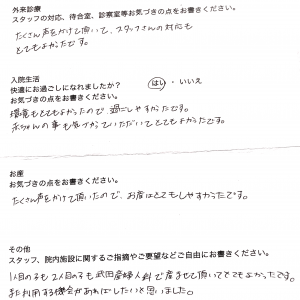 外来診療
スタッフの対応、待合室、診察室等お気づきの点をお書きください。
たくさん声をかけて頂いて、スタッフさんの対応も
とてもよかったです。
入院生活
快適にお過ごしになれましたか？ はい ・ いいえ
お気づきの点をお書きください。
環境もとてもよかったので過ごしやすかったです。
赤ちゃんの事も気づかっていただいてとてもよかったです。
お産
お気づきの点をお書きください。
たくさん声をかけて頂いたので、お産はとてもしやすかったです。
その他
スタッフ、院内施設に関するご指摘やご要望などご自由にお書きください。
1人目の子も2人目の子も武田産婦人科で産ませて頂いてとてもよかったです。
また利用する機会があればしたいと思いました。